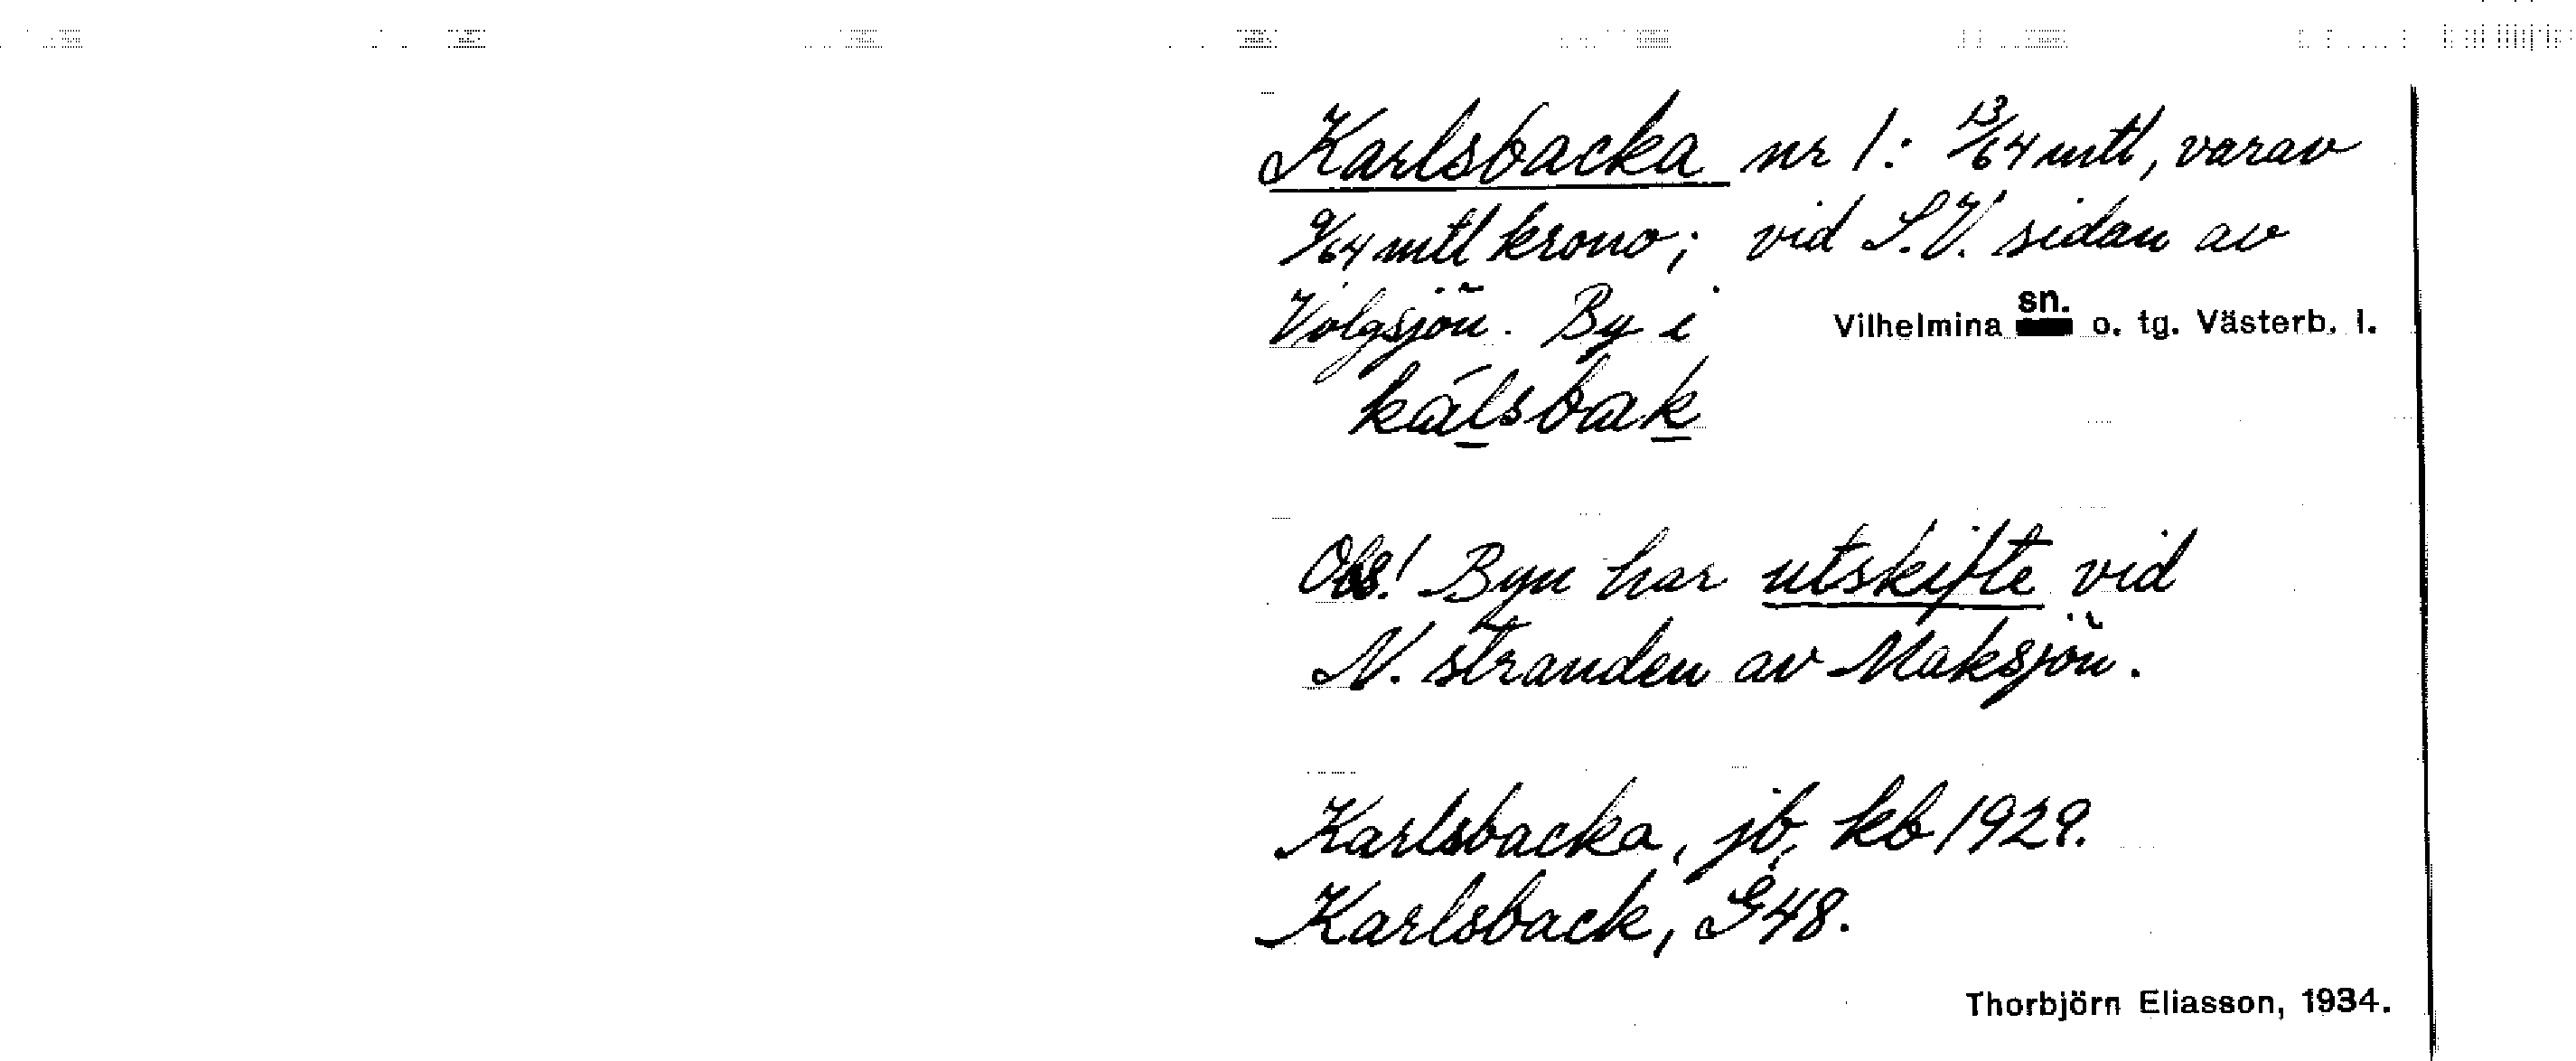 Karlsbacka nr 1: 13/64 mtl, varav
9/64 mtl krono; vid S.V. sidan av
Volgsjön. By i Vilhelmina sn. o. tg. Västerb. l.
kálsbak
Obs! Byn har utskifte vid
N. stranden av Maksjön.
Karlsbacka, jb, kb 1929.
Karlsback, G48.
Thorbjörn Eliasson, 1934.